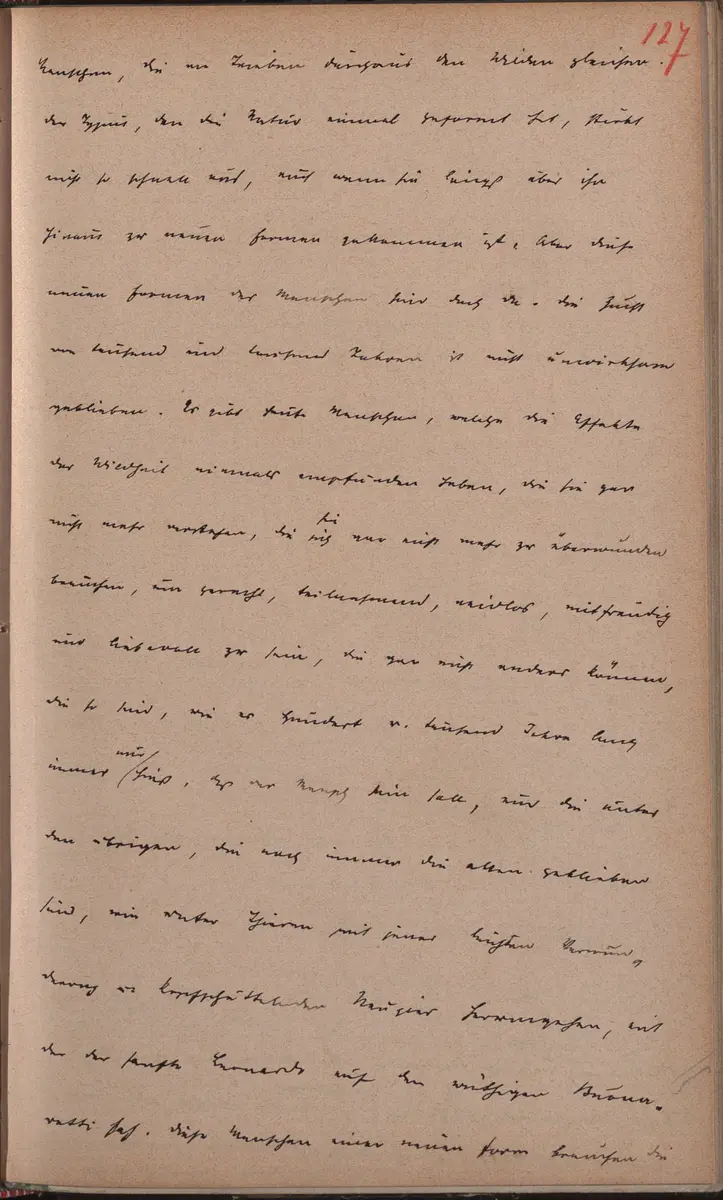 127
Menschen, die an Trieben durchaus den Wilden gleichen.
der Typus, den die Natur einmal geformt hat, stirbt
nicht so schnell aus, auch wenn sie längst über ihn
hinaus zu neuen Formen gekommen ist. Aber diese
neuen Formen der Menschen sind doch da. die Zucht
von tausend und tausend Jahren ist nicht unwirksam
geblieben. Es gibt heute Menschen, welche die Effekte
der Wildheit niemals empfunden haben, die sie gar
nicht mehr verstehen, die sie gar nicht mehr zu überwinden
brauchen, um gerecht, teilnehmend, neidlos, mitfreudig
und liebevoll zu sein, die gar nicht anders können,
die so sind, wie es hundert u. tausend Jahre lang
immer nur hieß, daß der Mensch sein soll, und die unter
den übrigen, die noch immer die alten geblieben
sind, wie unter Thieren mit jener leichten Verwun-
derung u. kopfschüttelnden Neugier herumgehen, mit
der der sanfte Leonardo auf den wüthigen Buonar-
rotti sah. diese Menschen einer neuen Form brauchen die